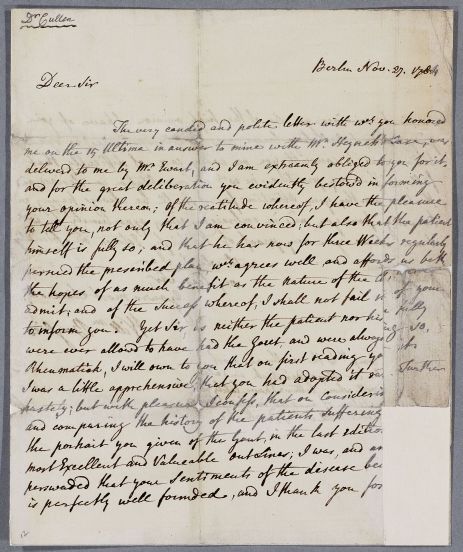 Dr Cullen
Berlin Nov. 27. 1784
Deer Sir
The very canded and polite letter with wch you honored
me on the 15 Ultimo in answer to mine with Mr Case, was
deliverd to me by Mr Ewart, and I am extreamly obliged to you for it,
and for the great deliberation you evidently bestowd in forming
your opinion thereon; of the rectitude whereof, I have the pleasure
to tell you, not only that I am convinced, but also that the patient
himself is fully so; and that he has now for three Weeks regularly
persued the prescribed plan, wch agrees well and affords us both
the hopes, of as much benefit as the nature of the
admit; and of the Success whereof, I shall not fail of your
to inform you. Yet Sir as neither the patient nor his fully
were ever allowed to have had the Gout, and were always so,
Rheumatick, I will own to you that on first reading yo its
I was a little apprehensive, that you had adopted it further
hastely; but with pleasure I confess, that on consider
and comparing the history of the patients suffering
the portrait you given of the Gout, in the last editio
most Excellent and Valueable outlines; I was, and am
perswaded that your Sentiments of the disease
is perfectly well founded, and I thank you for